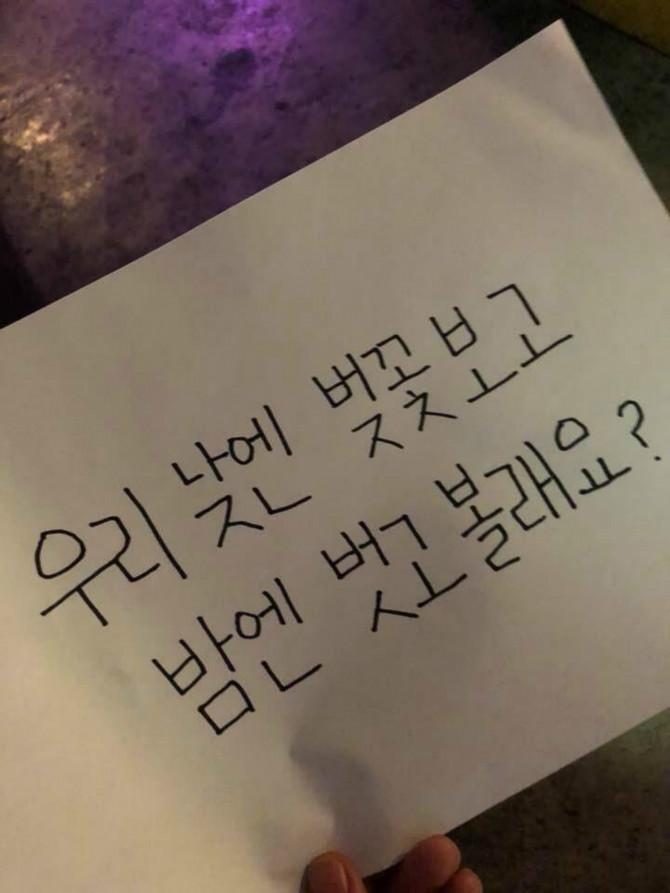 우리 낮엔 벚꽃 보고
밤엔 벗고 볼래요?